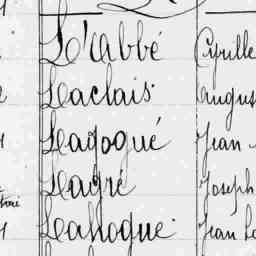 L'abbé Cyrille
Laclais August
Lagogué Jean
Lagré Joseph
Lahogue Jean